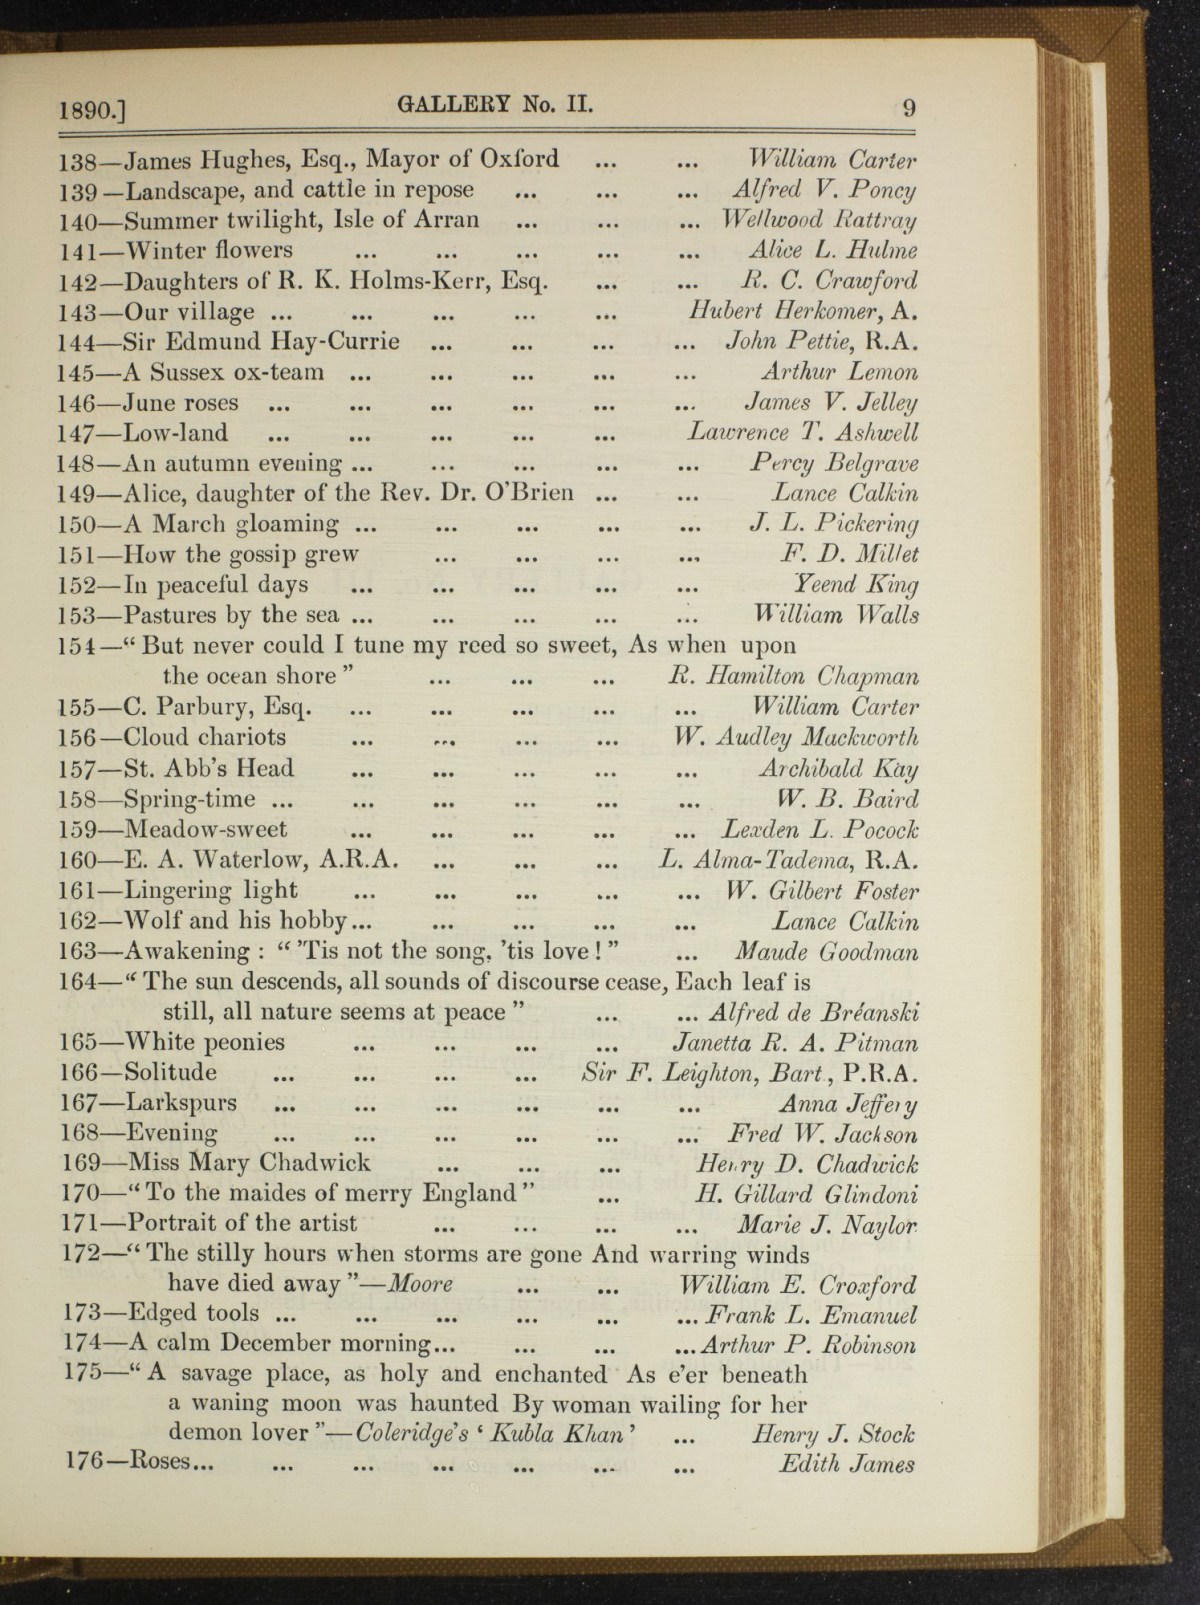 1890.] GALLERY No. II. 9
138—James Hughes, Esq., Mayor of Oxford ... ... William Carter
139—Landscape, and cattle in repose ... ... ... Alfred V. Poncy
140—Summer twilight, Isle of Arran ... ... ... Wellwood Rattray
141—Winter flowers ... ... ... ... ... Alice L. Hulme
142—Daughters of R. K. Holms-Kerr, Esq. ... ... R. C. Crawford
143—Our village ... ... ... ... ... Hubert Herkomer, A.
144—Sir Edmund Hay-Currie ... ... ... ... John Pettie, R.A.
145—A Sussex ox-team ... ... ... ... ... Arthur Lemon
146—June roses ... ... ... ... ... ... James V. Jelley
147—Low-land ... ... ... ... ... Lawrence T. Ashwell
148—An autumn evening ... ... ... ... ... Percy Belgrave
149—Alice, daughter of the Rev. Dr. O'Brien ... ... Lance Calkin
150—A March gloaming ... ... ... ... ... J. L. Pickering
151—How the gossip grew ... ... ... ... F. D. Millet
152—In peaceful days ... ... ... ... ... Yeend King
153—Pastures by the sea ... ... ... ... ... William Walls
154—“But never could I tune my reed so sweet, As when upon
the ocean shore” ... ... ... R. Hamilton Chapman
155—C. Parbury, Esq. ... ... ... ... ... William Carter
156—Cloud chariots ... ... ... ... W. Audley Mackworth
157—St. Abb's Head ... ... ... ... ... Archibald Kay
158—Spring-time ... ... ... ... ... ... W. B. Baird
159—Meadow-sweet ... ... ... ... ... Lexden L. Pocock
160—E. A. Waterlow, A.R.A. ... ... ... L. Alma-Tadema, R.A.
161—Lingering light ... ... ... ... ... W. Gilbert Foster
162—Wolf and his hobby... ... ... ... ... Lance Calkin
163—Awakening : “'Tis not the song, 'tis love!” ... Maude Goodman
164—“The sun descends, all sounds of discourse cease, Each leaf is
still, all nature seems at peace” ... ... Alfred de Bréanski
165—White peonies ... ... ... ... Janetta R. A. Pitman
166—Solitude ... ... ... ... Sir F. Leighton, Bart., P.R.A.
167—Larkspurs ... ... ... ... ... ... Anna Jeffery
168—Evening ... ... ... ... ... ... Fred W. Jackson
169—Miss Mary Chadwick ... ... ... Henry D. Chadwick
170—“To the maides of merry England” ... H. Gillard Glindoni
171—Portrait of the artist ... ... ... ... Marie J. Naylor
172—“The stilly hours when storms are gone And warring winds
have died away”—Moore ... ... William E. Croxford
173—Edged tools ... ... ... ... ... ... Frank L. Emanuel
174—A calm December morning... ... ... ... Arthur P. Robinson
175—“A savage place, as holy and enchanted As e'er beneath
a waning moon was haunted By woman wailing for her
demon lover”—Coleridge's ‘Kubla Khan’ ... Henry J. Stock
176—Roses... ... ... ... ... ... ... Edith James